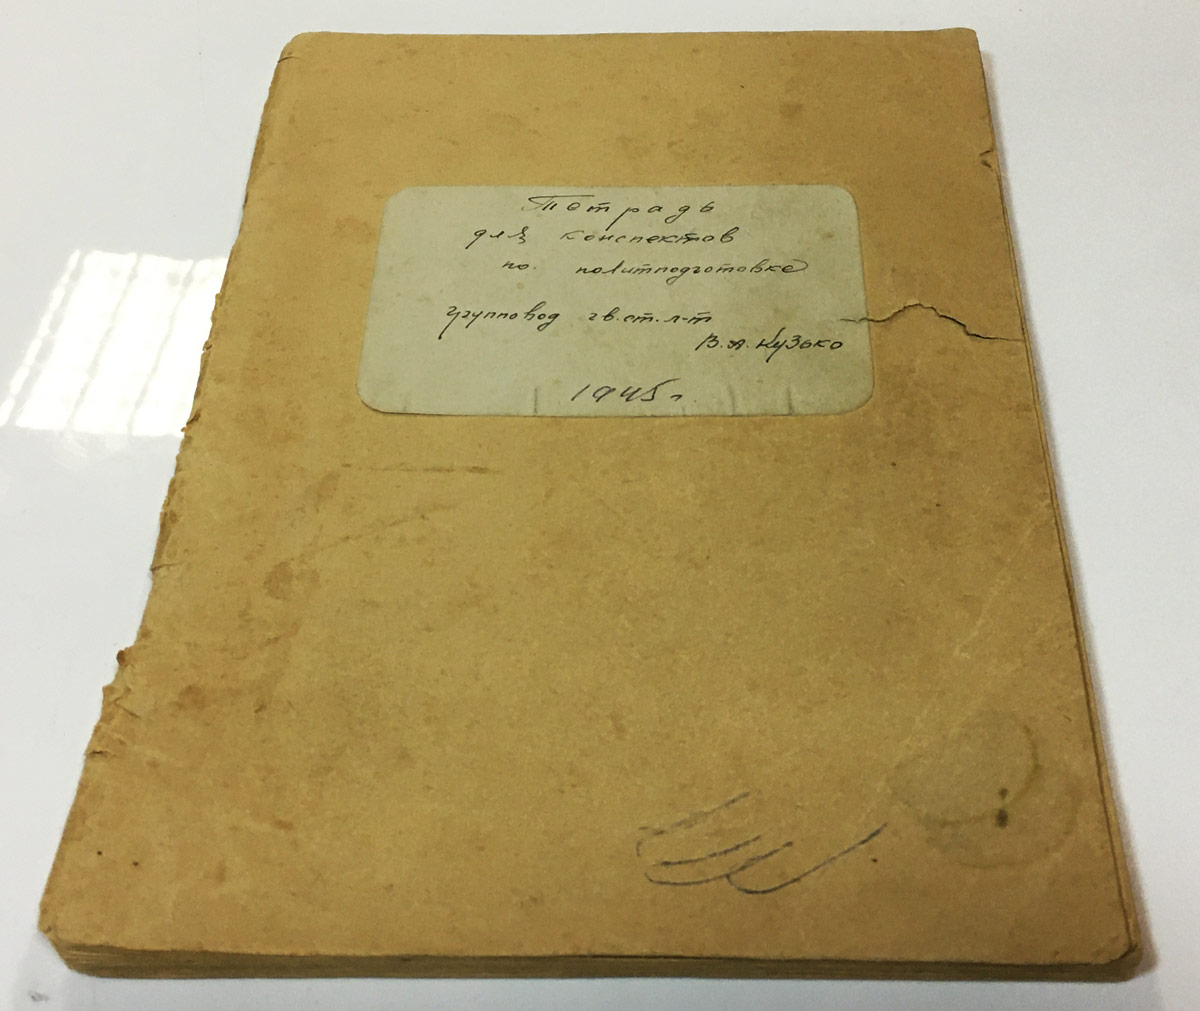 Тетрадь
для конспектов
по. политподготовке
групповод гв.ст.л-т
В.А.Кузько
1945г.